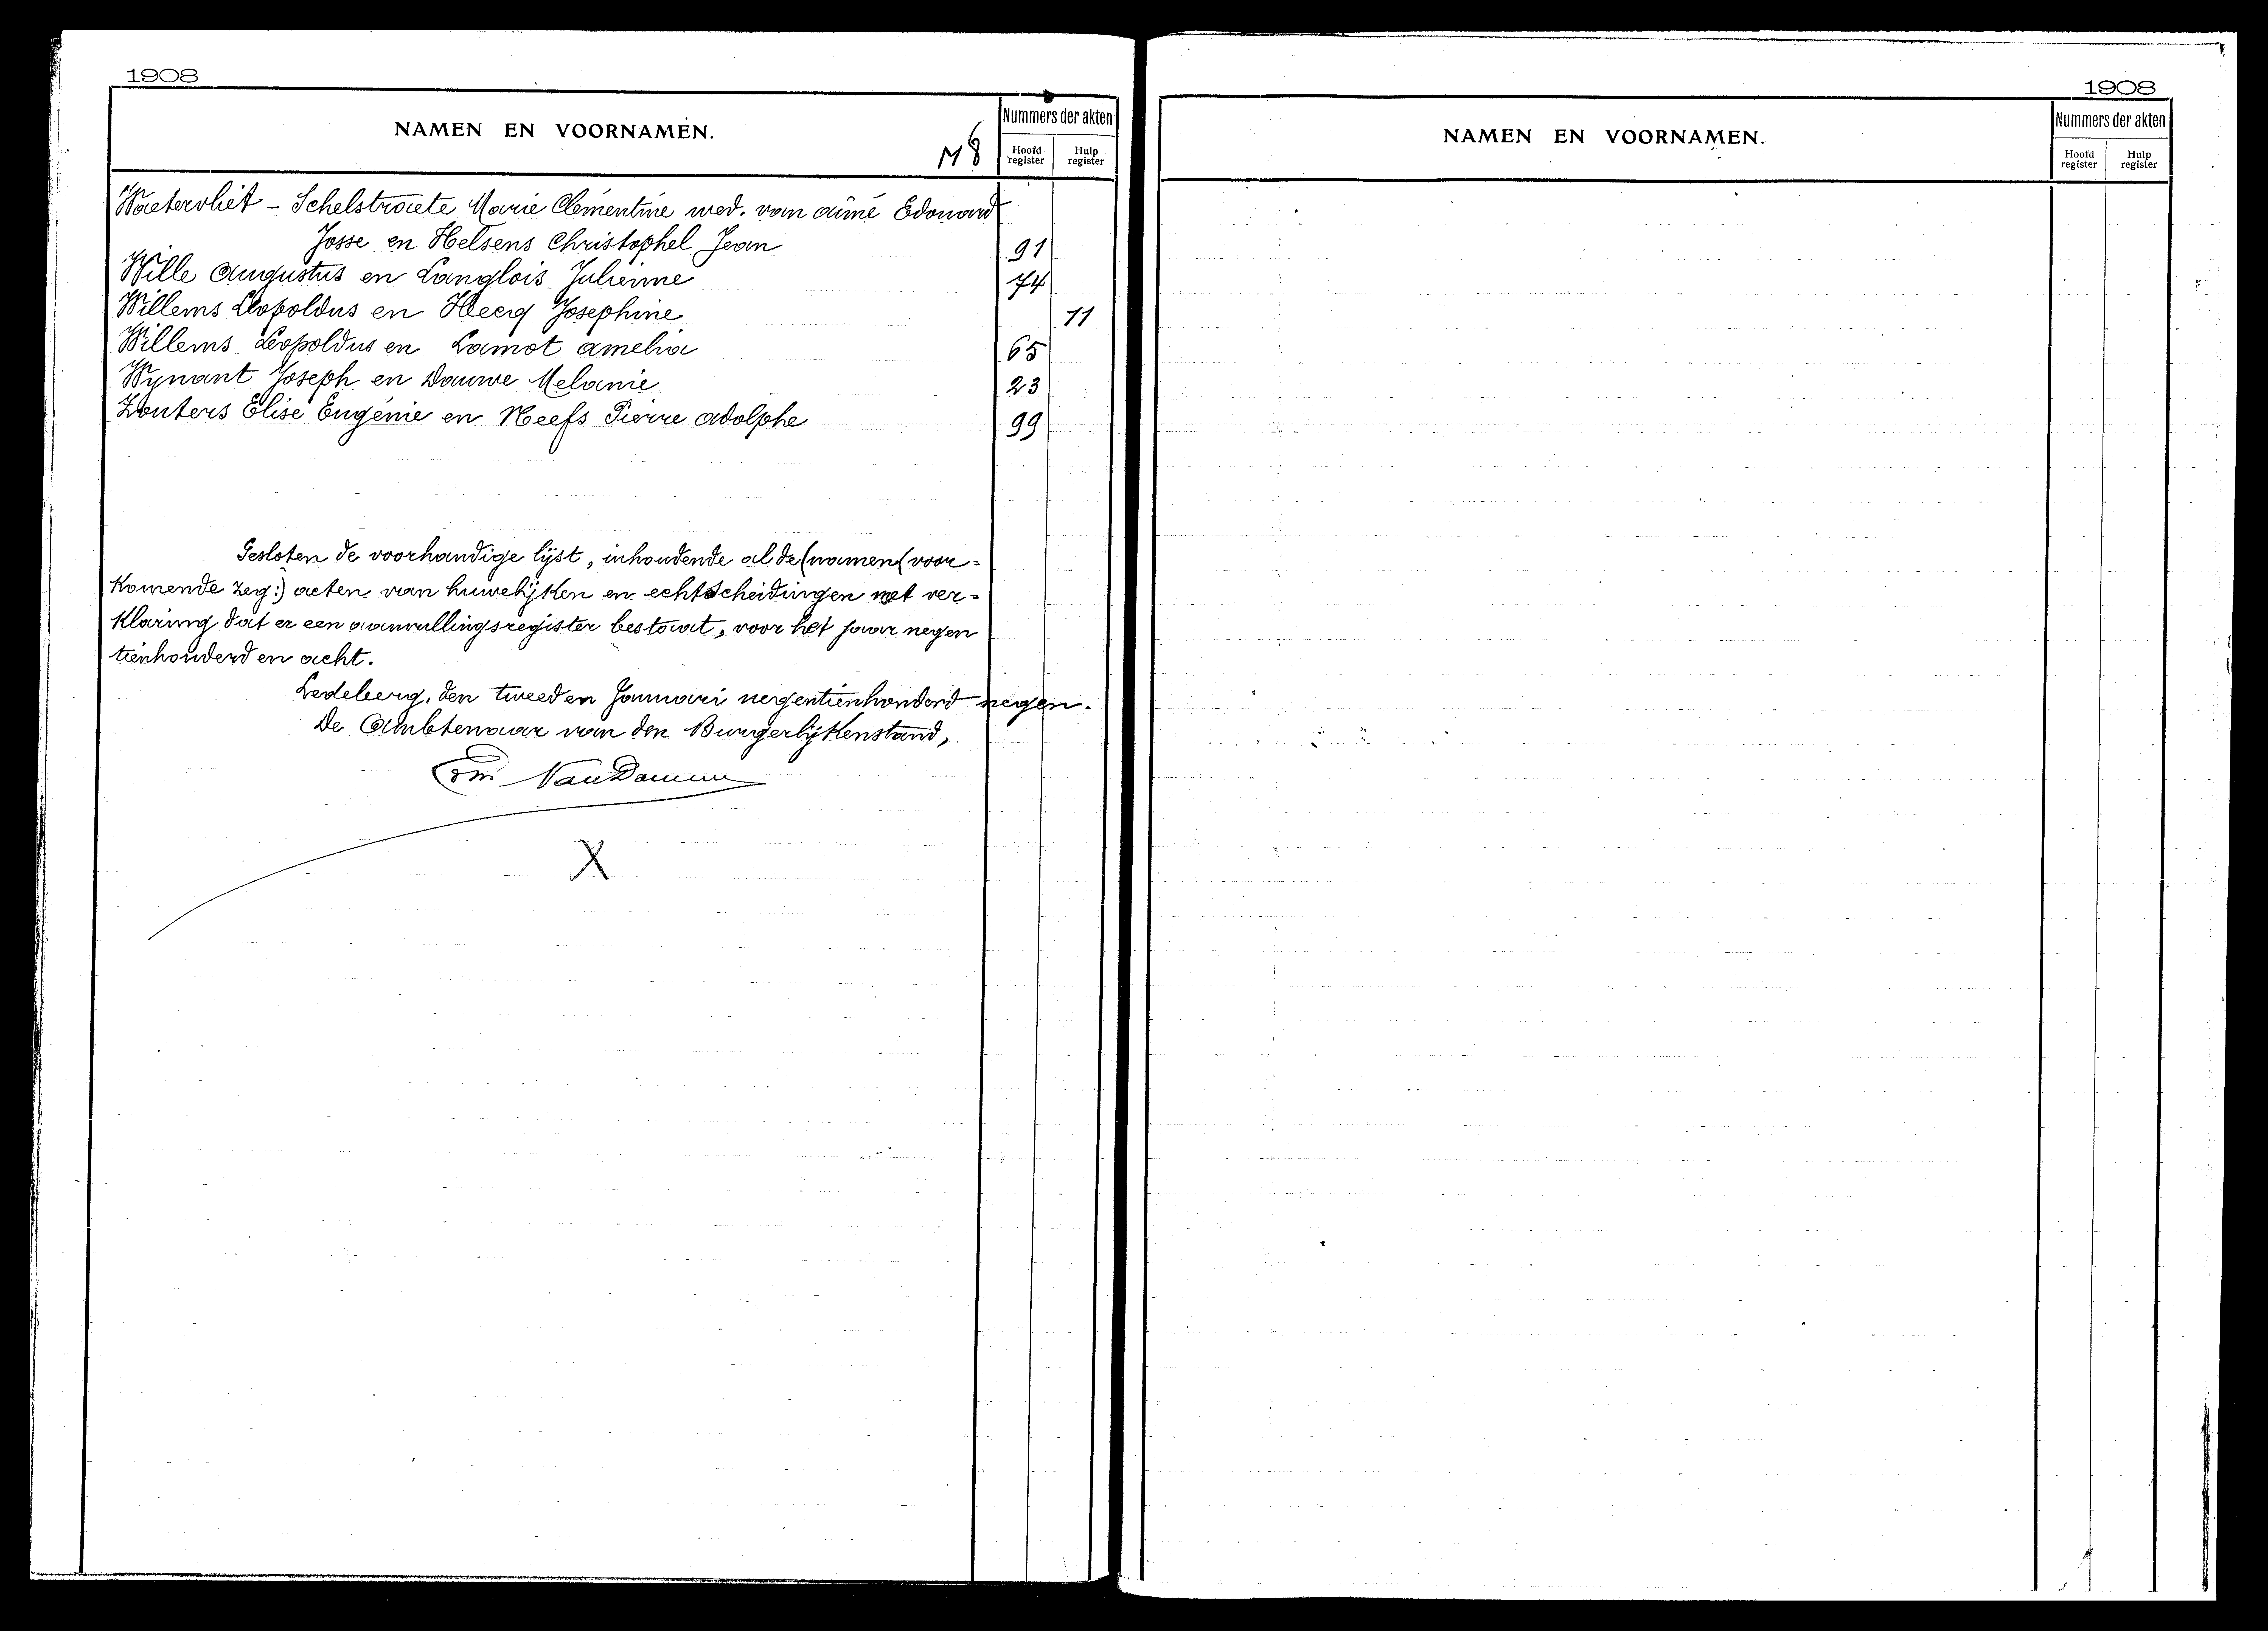 1908
NAMEN EN VOORNAMEN.
M 8
Nummers der akten
Hoofd register
Hulp register
Waetervliet - Schelstraete Marie Clémentine wed. van Aimé Edouard
Josse en Helsens Christophel Jean 91
Wille Augustus en Langlois Julienne 74
Willems Leopoldus en Heerg Josephine 11
Willems Leopoldus en Lamot Amelia 65
Wynant Joseph en Dauwe Melanie 23
Zouters Elise Eugénie en Neefs Pierre Adolphe 99
Gesloten de voorhandige lijst, inhoudende al de (namen (voor=
Komende zeg:) acten van huwelijken en echtscheidingen met ver=
klaring dat er een aanvullingsregister bestaat, voor het jaar negen
tienhonderd en acht.
Ledeberg, den tweeden Januari negentienhonderd negen.
De Ambtenaar van den Burgerlijkenstand,
Van Damme
X
1908
NAMEN EN VOORNAMEN.
Nummers der akten
Hoofd register
Hulp register